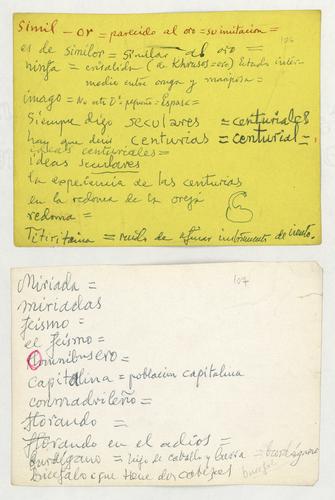 Simil - or = parecido al oro = su imitacion =
106
es de similor = similar al oro =
ninfa = crisalida (de Khrusos = oro) estado inter-
medio entre oruga y mariposa =
imago = No este Dº pequeño = Espasa =
Siempre digo seculares = centuriales
hay que decir centurias = centurial =
ideas centuriales =
ideas seculares
la experiencia de las centurias
en la redoma de la oreja
redoma =
Titiritaina = ruido de afinar instrumento de viento.
107
Miriada =
miriadas
feismo =
el feismo =
Omnibusero =
capitalina = poblacion capitalina
conmadrileño =
florando =
florando en el adios =
burdégano = hijo de caballo y burra = burdégano
bucefalo = que tiene dos cabezas bucefalo